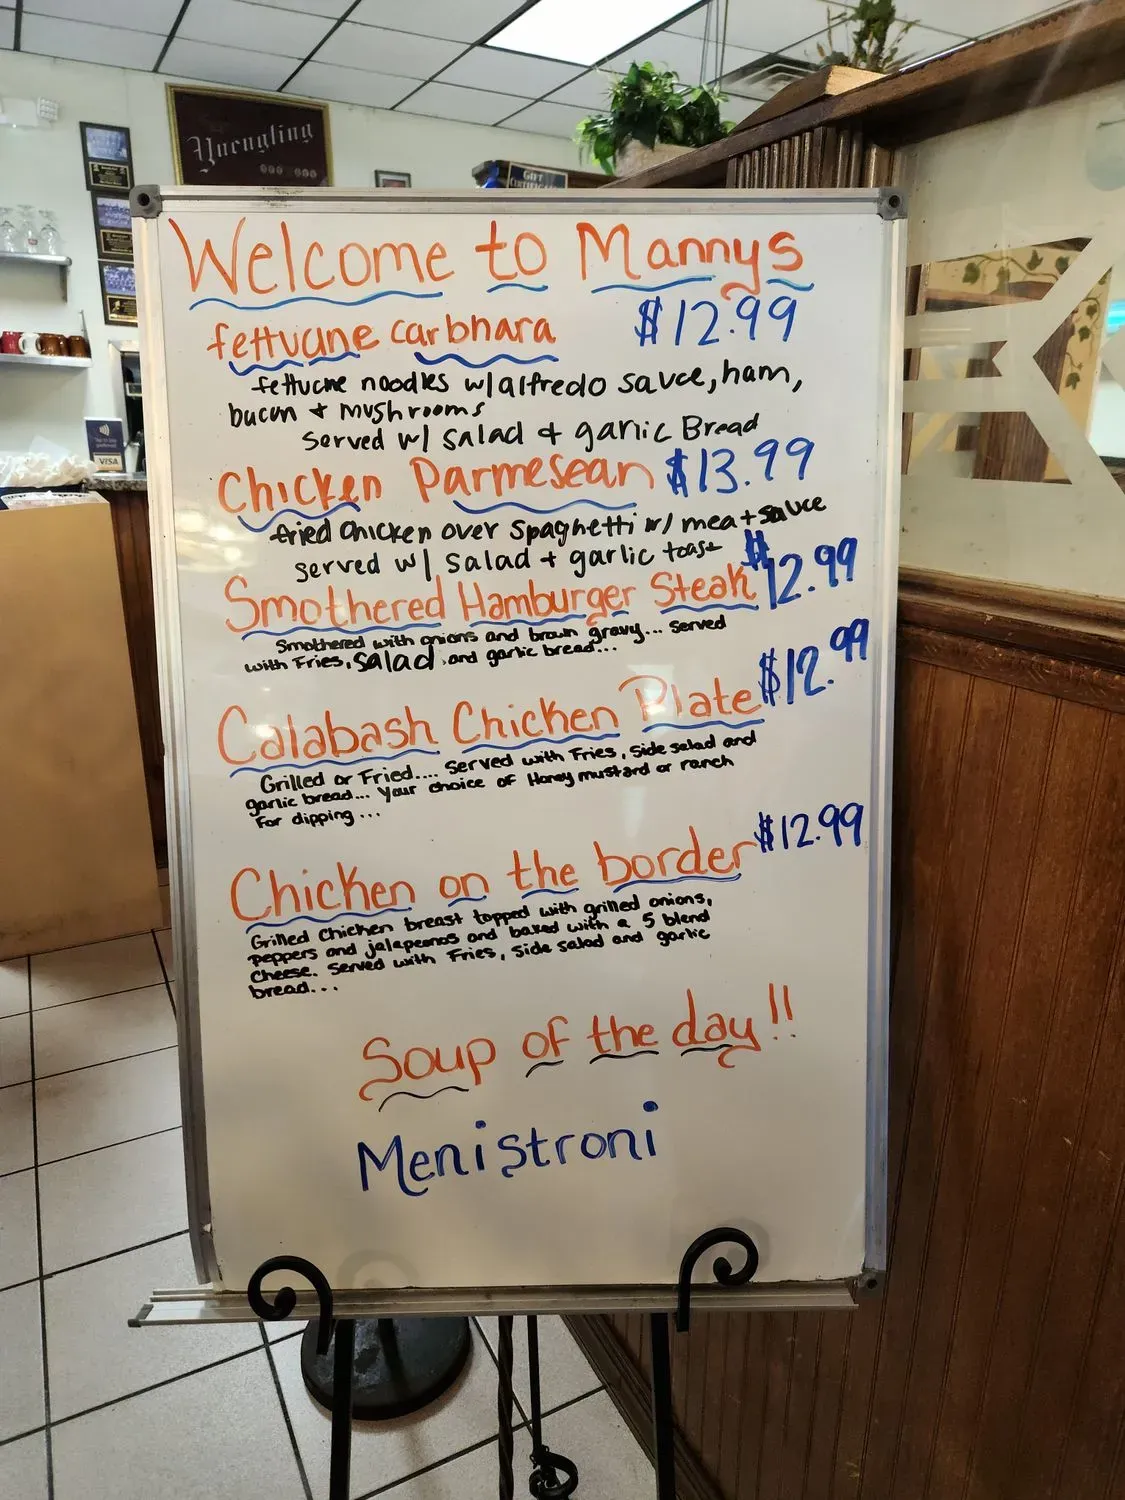 Yuengling
GIFT
CERTIFICATES
VISA
Welcome to Mannys
fettucine carbnara $12.99
fettucne noodles w/alfredo sauce, ham,
bacon + mushrooms
served w/ salad & garlic Bread
Chicken Parmesean $13.99
fried chicken over spaghetti w/ meat sauce
served w/ salad + garlic toast
Smothered Hamburger Steak $12.99
Smothered with onions and brown gravy... served
with Fries, salad and garlic bread...
Calabash Chicken Plate $12.99
Grilled or Fried.... served with Fries, side salad and
garlic bread... Your choice of Honey mustard or ranch
For dipping ...
Chicken on the border $12.99
Grilled Chicken breast topped with grilled onions,
peppers and jalapenos and baked with a 5 blend
cheese. Served with Fries, side salad and garlic
bread...
Soup of the day!!
Menistroni